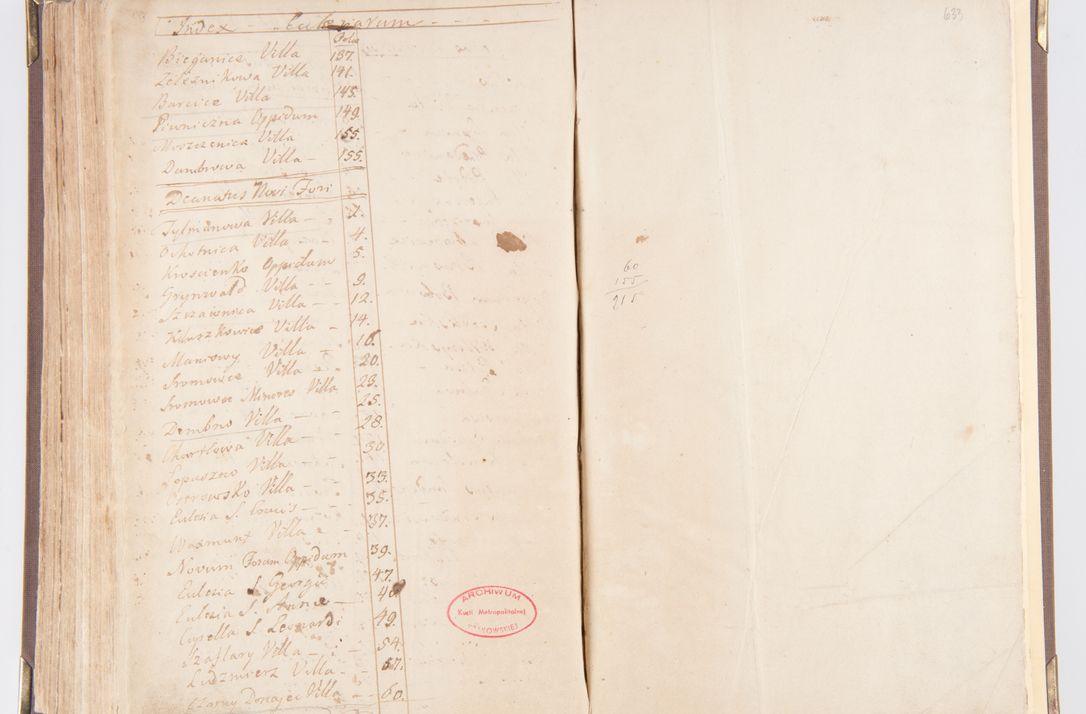 Index Ecclesiarum
Folio
Bieganice Villa 137.
Zelesnikowa Villa 141.
Barcice Villa 145.
Piwniczna Oppidum 149.
Moszczenica Villa 155.
Dambrowa Villa – 155.
Deanatus Novi Fori
Tylmanowa Villa – 2.
Ochotnica Villa – 4.
Kroscienko Oppidum 5.
Grynwald Villa – 9.
Szczawnica Villa – 12.
Kluszkowice Villa – 14.
Maniowy Villa – 16.
Sromowice Villa – 20.
Sromowce Minores Villa 23.
Dembno Villa – 25.
Chartlowa Villa – 28.
Lopuszno Villa – 30.
Ostrowsko Villa – 33.
Eulesia S. Crucis – 35.
Waxmunt Villa – 37.
Novum Forum Oppidum 39.
Eulesia S. Georgii 47.
Eulesia S. Anna – 48
Capella S. Leonardi 49.
Szaflary Villa – 54.
Ludzmierz Villa – 57.
Czarny Donajec Villa – 60.
ARCHIWUM
Kurii Metropolitalnej
KRAKOWSKIEJ
633
60
155
215